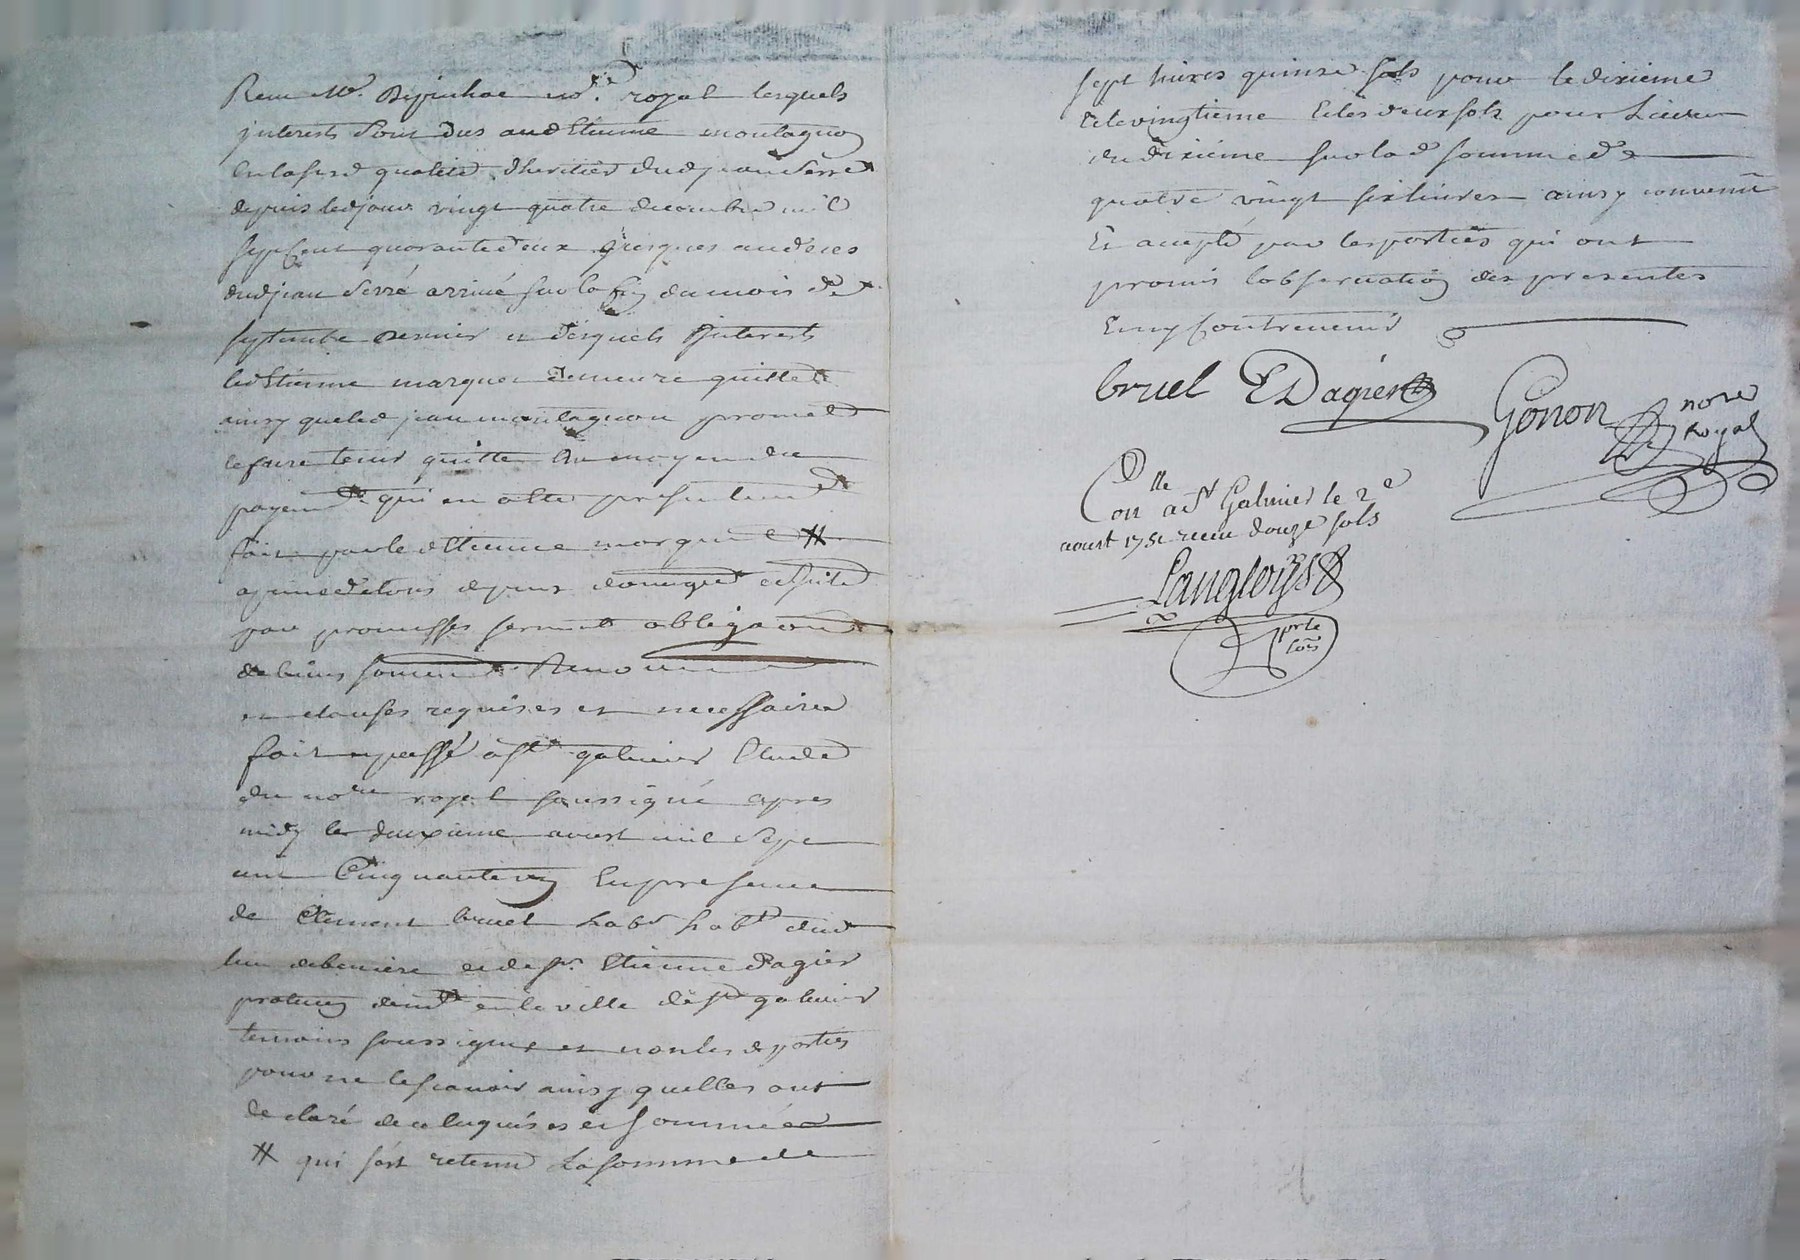 Receu Me. no.re royal lesquels
interests sont dus aud Etienne montagnon
en lasusd qualité d'heritier dud jean Serre
depuis ledjour vingt quatre decembre mil
sept cent quarante deux jusques au deces
dud jean Serré arrivé sur la fin du mois de
septembre dernier et desquels interests
led Etienne marque demeure quitte
ainsy que led jean montagnon promet
le faire tenir quitte au moyen du
payemt qui en a été presentemt
fait par led Etienne marque #
a peine de tous depens domages
par promesses serment obligaon
de biens soumis Renon
et clauses requises et necessaires
fait et passé a St galmier Etude
du nore royal soussigné apres
midy le deuxieme aoust mil sept
cent Cinquante un En presence
de Clement bruel hab dud
lieu et de sr. Etienne Dagier
praticien demt en la ville de St galmier
temoins soussignes et non lesd parties
pour ne le scavoir ainsy quelles ont
declaré de ce enquises et sommées
# qui s'est retenu La somme de
sept livres quinse sols pour le dixième
et le vingtieme et les deux sols pour Livre
du dixième sur lad somme de
quatre vingt six livres ainsy convenu
Et accepté par les parties qui ont
promis l'observation des presentes
Et ny contrevenir
bruel E Dagier Gonon nore
Royal
Conlle a St Galmier le 2e
aoust 1751 receu douze sols
Langloiss
prle
Cois